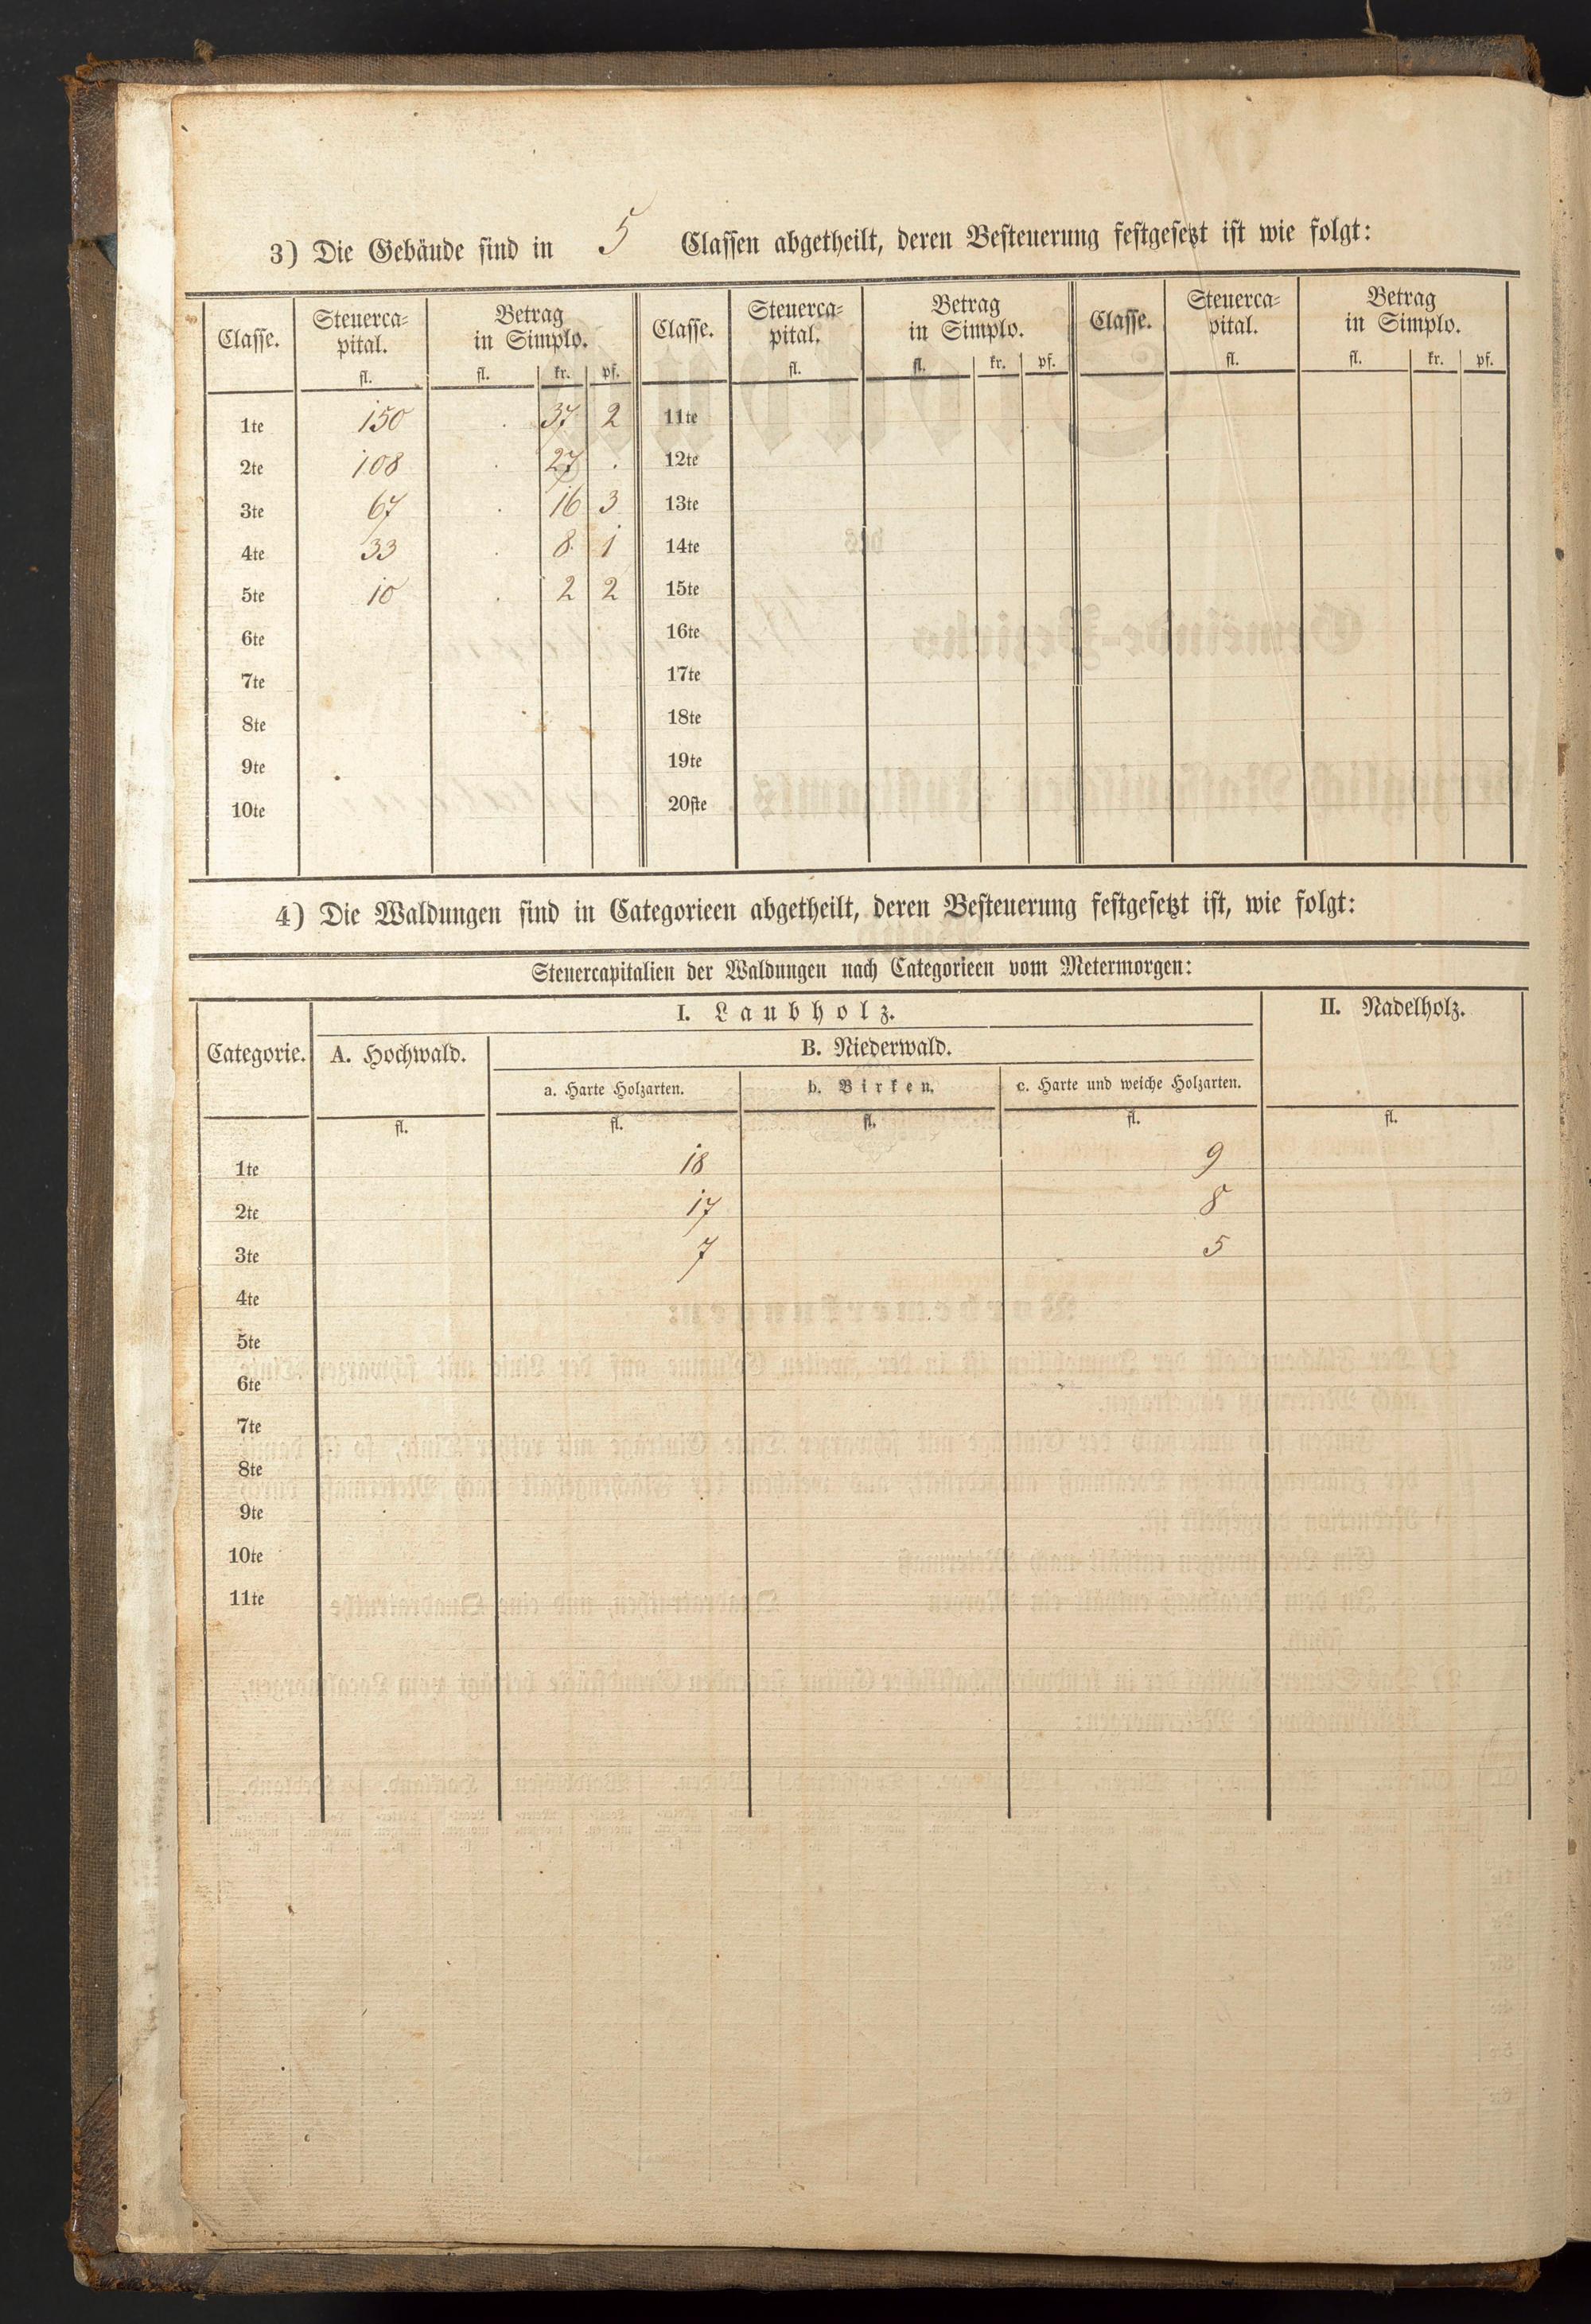 3) Die Gebäude sind in 5 Classen abgetheilt, deren Besteuerung festgesetzt ist wie folgt:
Classe. Steuerca- Betrag Classe. Steuerca- Betrag Classe. Steuerca- Betrag
pital. in Simplo. pital. in Simplo. pital. in Simplo.
fl. fl. kr. pf. fl. fl. kr. pf. fl. fl. kr. pf.
1te 150 . 37 2 11te
2te 108 . 27 . 12te
3te 67 . 16 3 13te
4te 33 . 8 1 14te
5te 10 . 2 2 15te
6te 16te
7te 17te
8te 18te
9te 19te
10te 20ste
4) Die Waldungen sind in Categorieen abgetheilt, deren Besteuerung festgesetzt ist, wie folgt:
Steuercapitalien der Waldungen nach Categorieen vom Metermorgen:
Categorie. I. Laubholz. II. Nadelholz.
A. Hochwald. B. Niederwald.
a. Harte Holzarten. b. Birken. c. Harte und weiche Holzarten.
fl. fl. fl. fl. fl.
1te 18 9
2te 17 8
3te 7 5
4te
5te
6te
7te
8te
9te
10te
11te